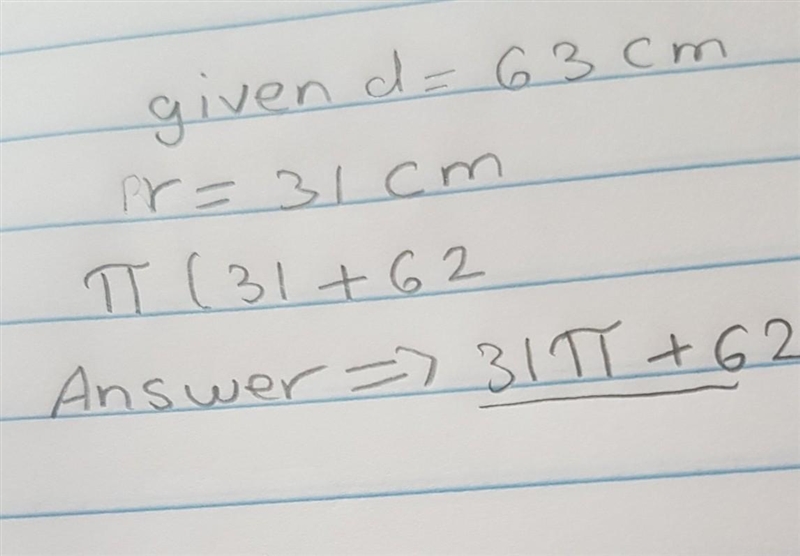 given d = 63 cm
r = 31 cm
π (31 + 62
Answer => 31π + 62